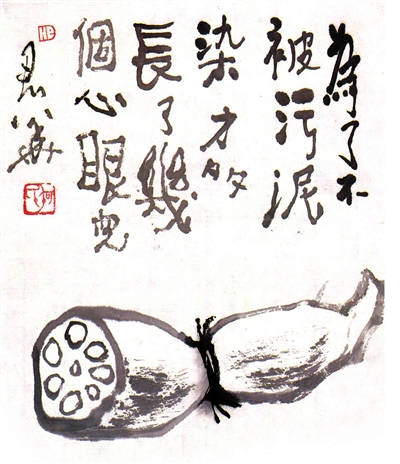 為了不
被污泥
染才多
長了幾
個心眼兒
HE